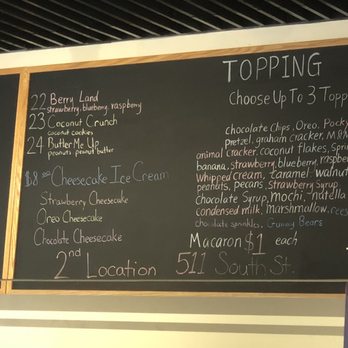 22 Berry Land
strawberry, blueberry, raspberry
23 Coconut Crunch
coconut cookies
24 Butter Me Up
peanuts peanut butter
$8.00 Cheesecake Ice Cream
Strawberry Cheesecake
Oreo Cheesecake
Chocolate Cheesecake
2nd Location 511 South St.
TOPPING
Choose Up To 3 Topp
chocolate chips, Oreo, Pocky
pretzel, graham cracker, M&M
animal cracker, coconut flakes, Spri
banana, strawberry, blueberry, raspber
Whipped cream, caramel walnut
peanuts, pecans, Strawberry Syrup
chocolate Syrup, mochi, nutella
condensed milk, marshmallow, rees
chocolate sprinkles, Gummy Bears
Macaron $1 each